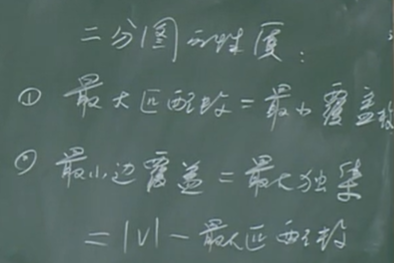 二分图的性质：
① 最大匹配数 = 最小覆盖数
② 最小边覆盖 = 最大独集
= |V| - 最大匹配数